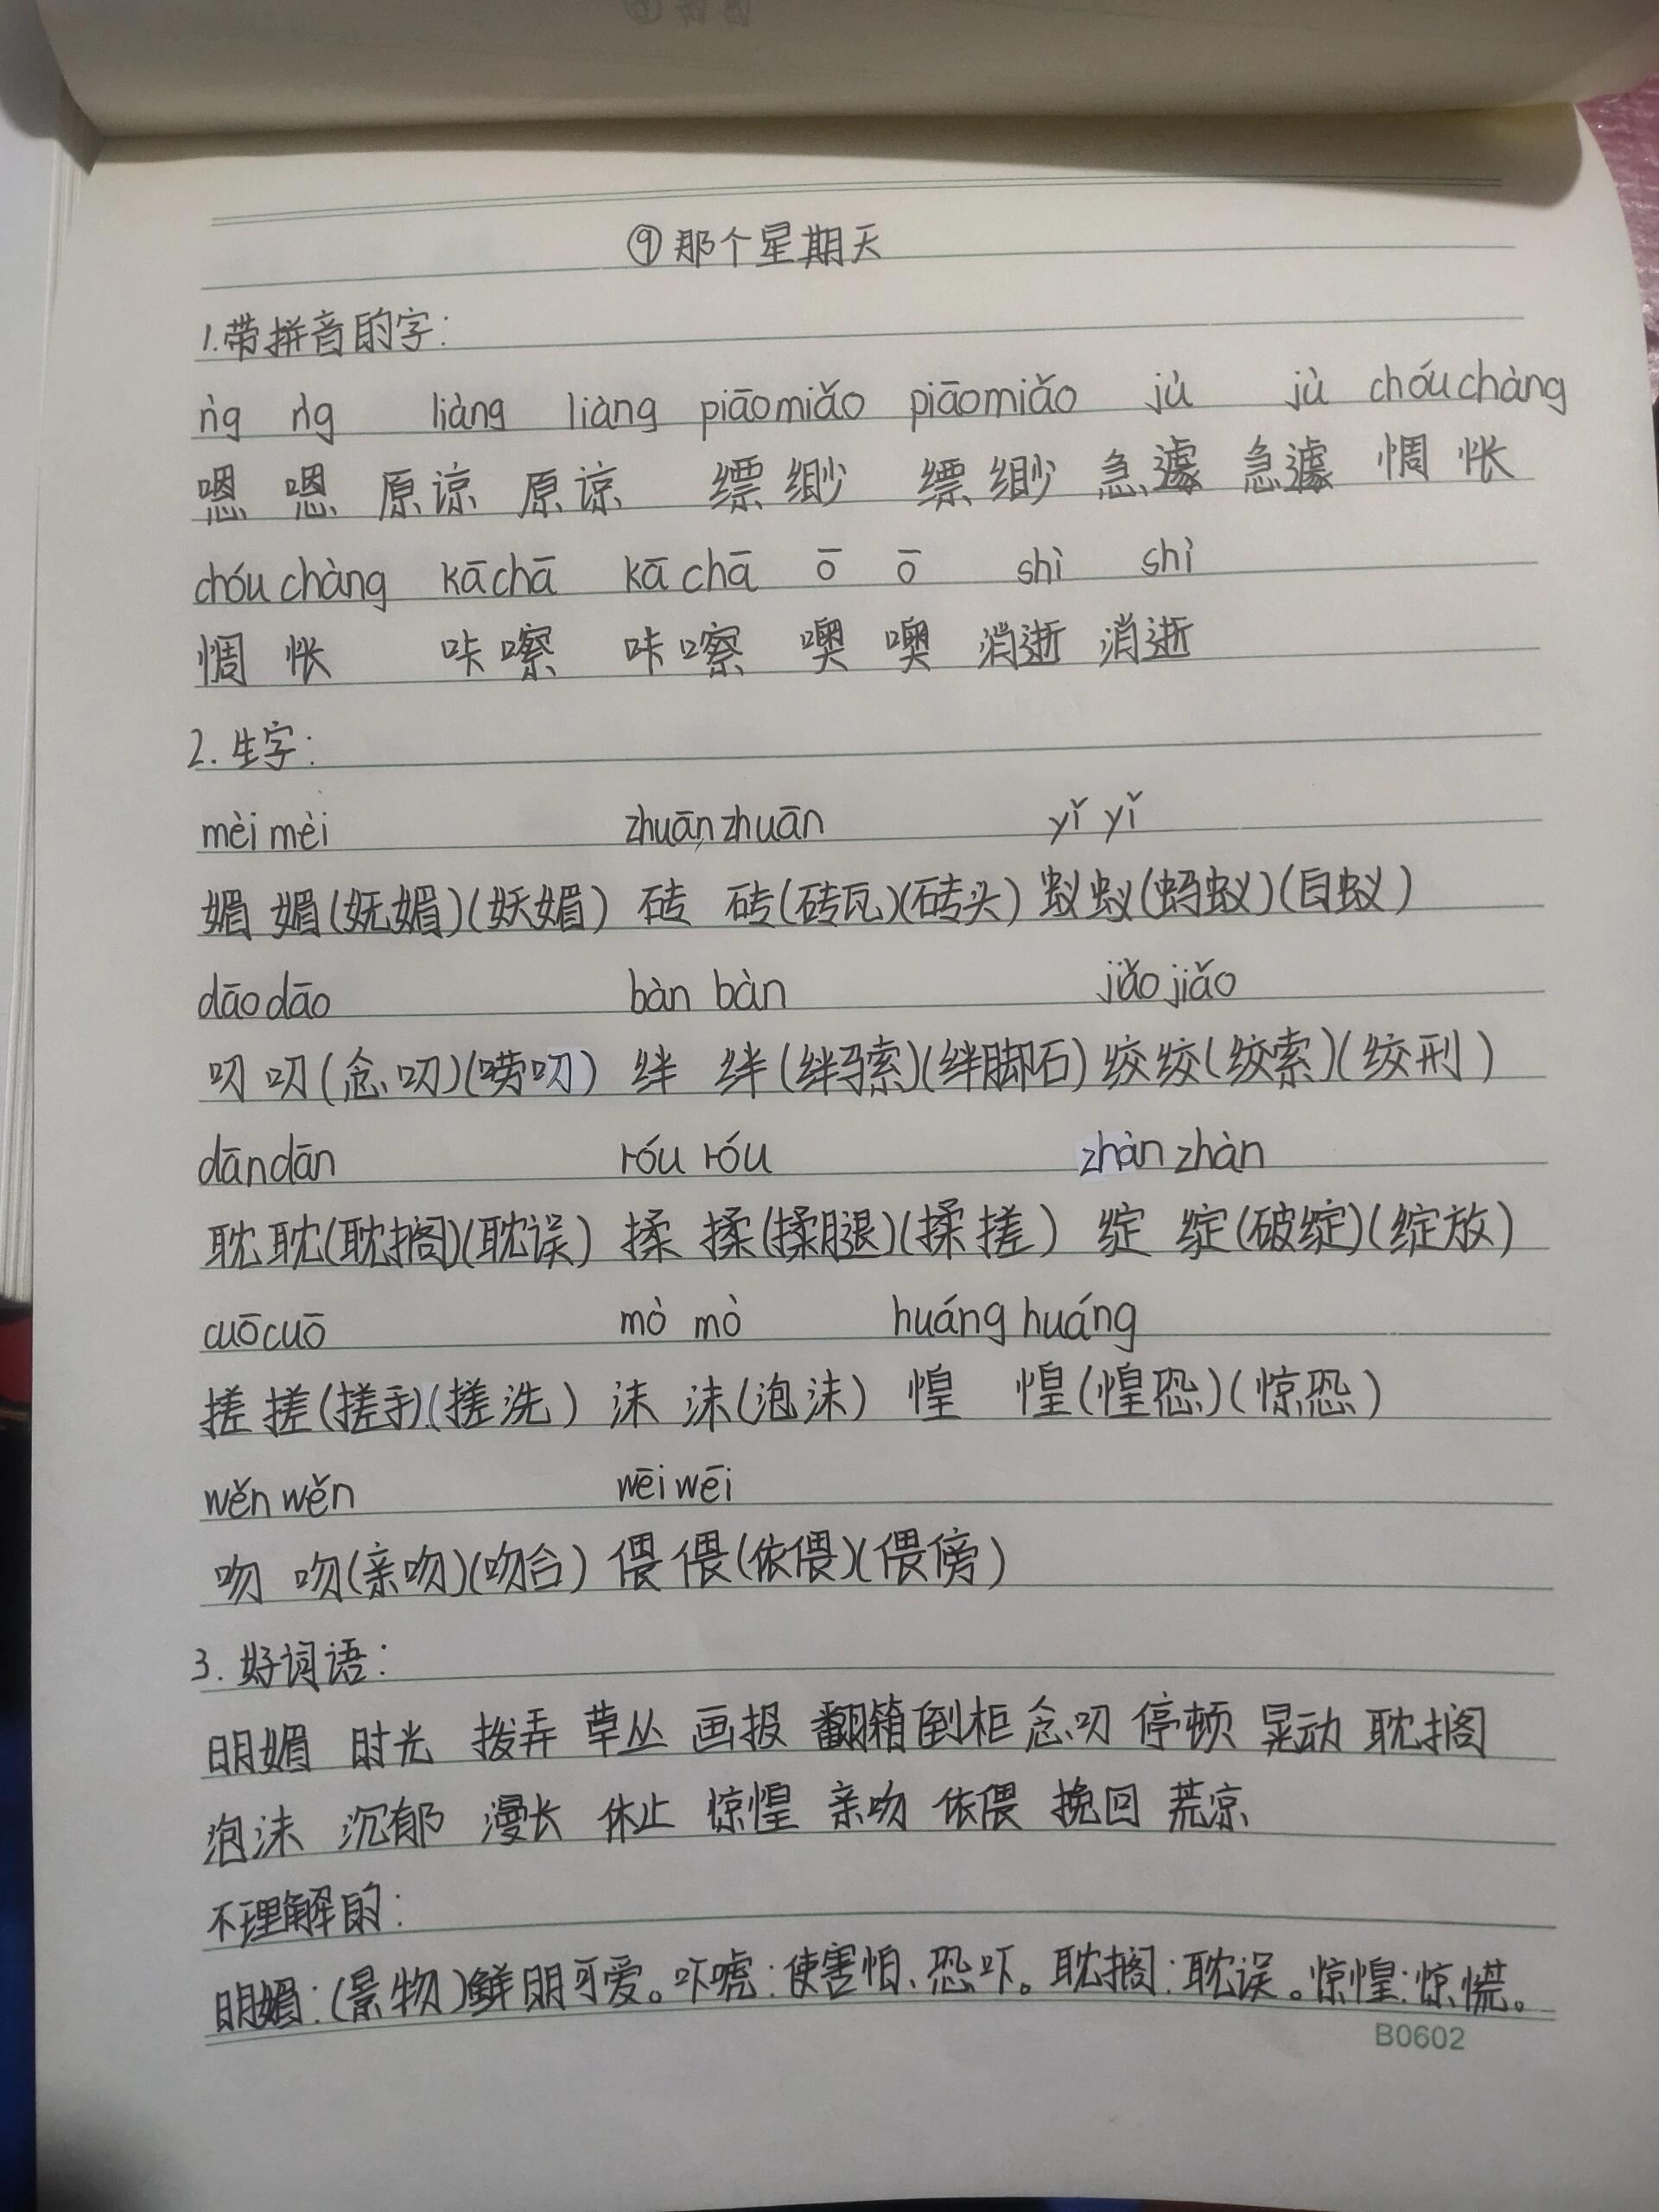 ⑨那个星期天
1.带拼音的字:
ǹg ǹg liàng liàng piāomiǎo piāomiǎo jù jù chóuchàng
嗯 嗯 原谅 原谅 缥缈 缥缈 急遽 急遽 惆怅
chóuchàng kāchā kāchā ō ō shì shì
惆怅 咔嚓 咔嚓 噢 噢 消逝 消逝
2.生字:
mèi mèi zhuān zhuān yǐ yǐ
媚 媚(妩媚)(妖媚) 砖 砖(砖瓦)(砖头) 蚁 蚁(蚂蚁)(白蚁)
dāo dāo bàn bàn jiǎo jiǎo
叨 叨(念叨)(唠叨) 绊 绊(绊马索)(绊脚石) 绞 绞(绞索)(绞刑)
dān dān róu róu zhàn zhàn
耽 耽(耽搁)(耽误) 揉 揉(揉腿)(揉搓) 绽 绽(破绽)(绽放)
cuō cuō mò mò huáng huáng
搓 搓(搓手)(搓洗) 沫 沫(泡沫) 惶 惶(惶恐)(惊恐)
wěn wěn wēi wēi
吻 吻(亲吻)(吻合) 偎 偎(依偎)(偎傍)
3.好词语:
明媚 时光 拨弄 草丛 画报 翻箱倒柜 念叨 停顿 晃动 耽搁
泡沫 沉郁 漫长 休止 惊惶 亲吻 依偎 挽回 荒凉
不理解的:
明媚:(景物)鲜明可爱。吓唬:使害怕、恐吓。耽搁:耽误。惊惶:惊慌。
B0602